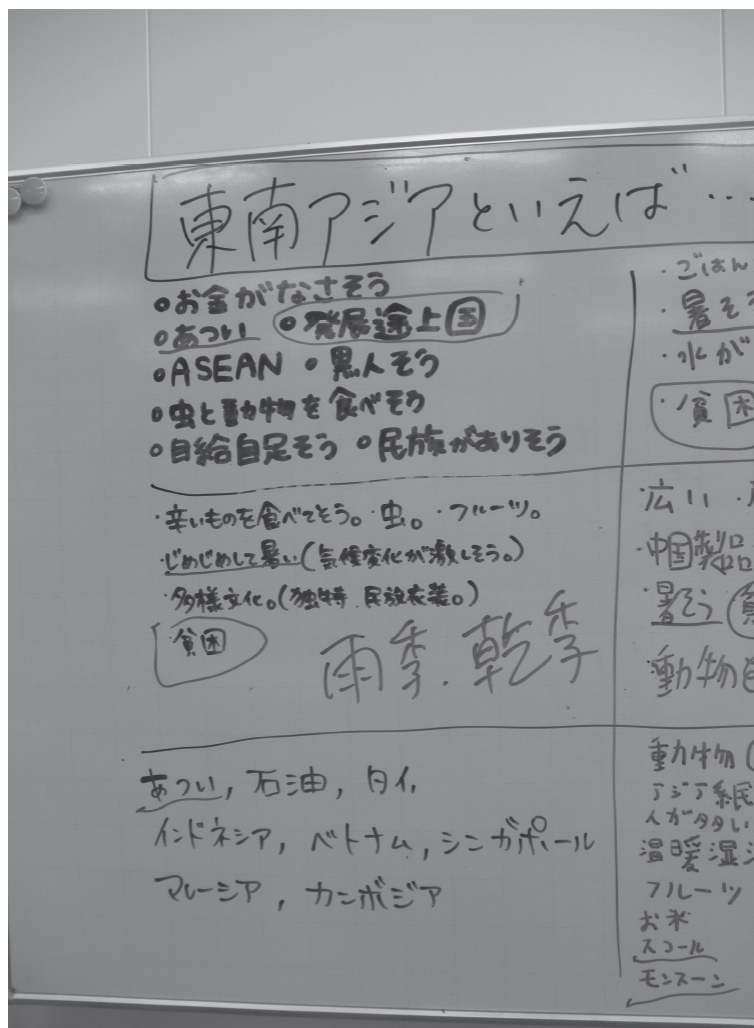 東南アジアといえば…
•お金がなさそう
•あつい •発展途上国
•ASEAN •黒人そう
•虫と動物を食べそう
•自給自足そう •民族がありそう
・辛いものを食べてそう。・虫。・フルーツ。
・じめじめして暑い(気候変化が激しそう。)
・多様文化。(独特 民族衣装。)
・貧困
雨季・乾季
あつい, 石油, タイ,
インドネシア, ベトナム, シンガポール
マレーシア, カンボジア
・ごはん
・暑そう
・水が
・貧困
広い
・中国製品
・暑そう
動物
動物(
アジア系民
人が多い
温暖湿
フルーツ
お米
スコール
モンスーン